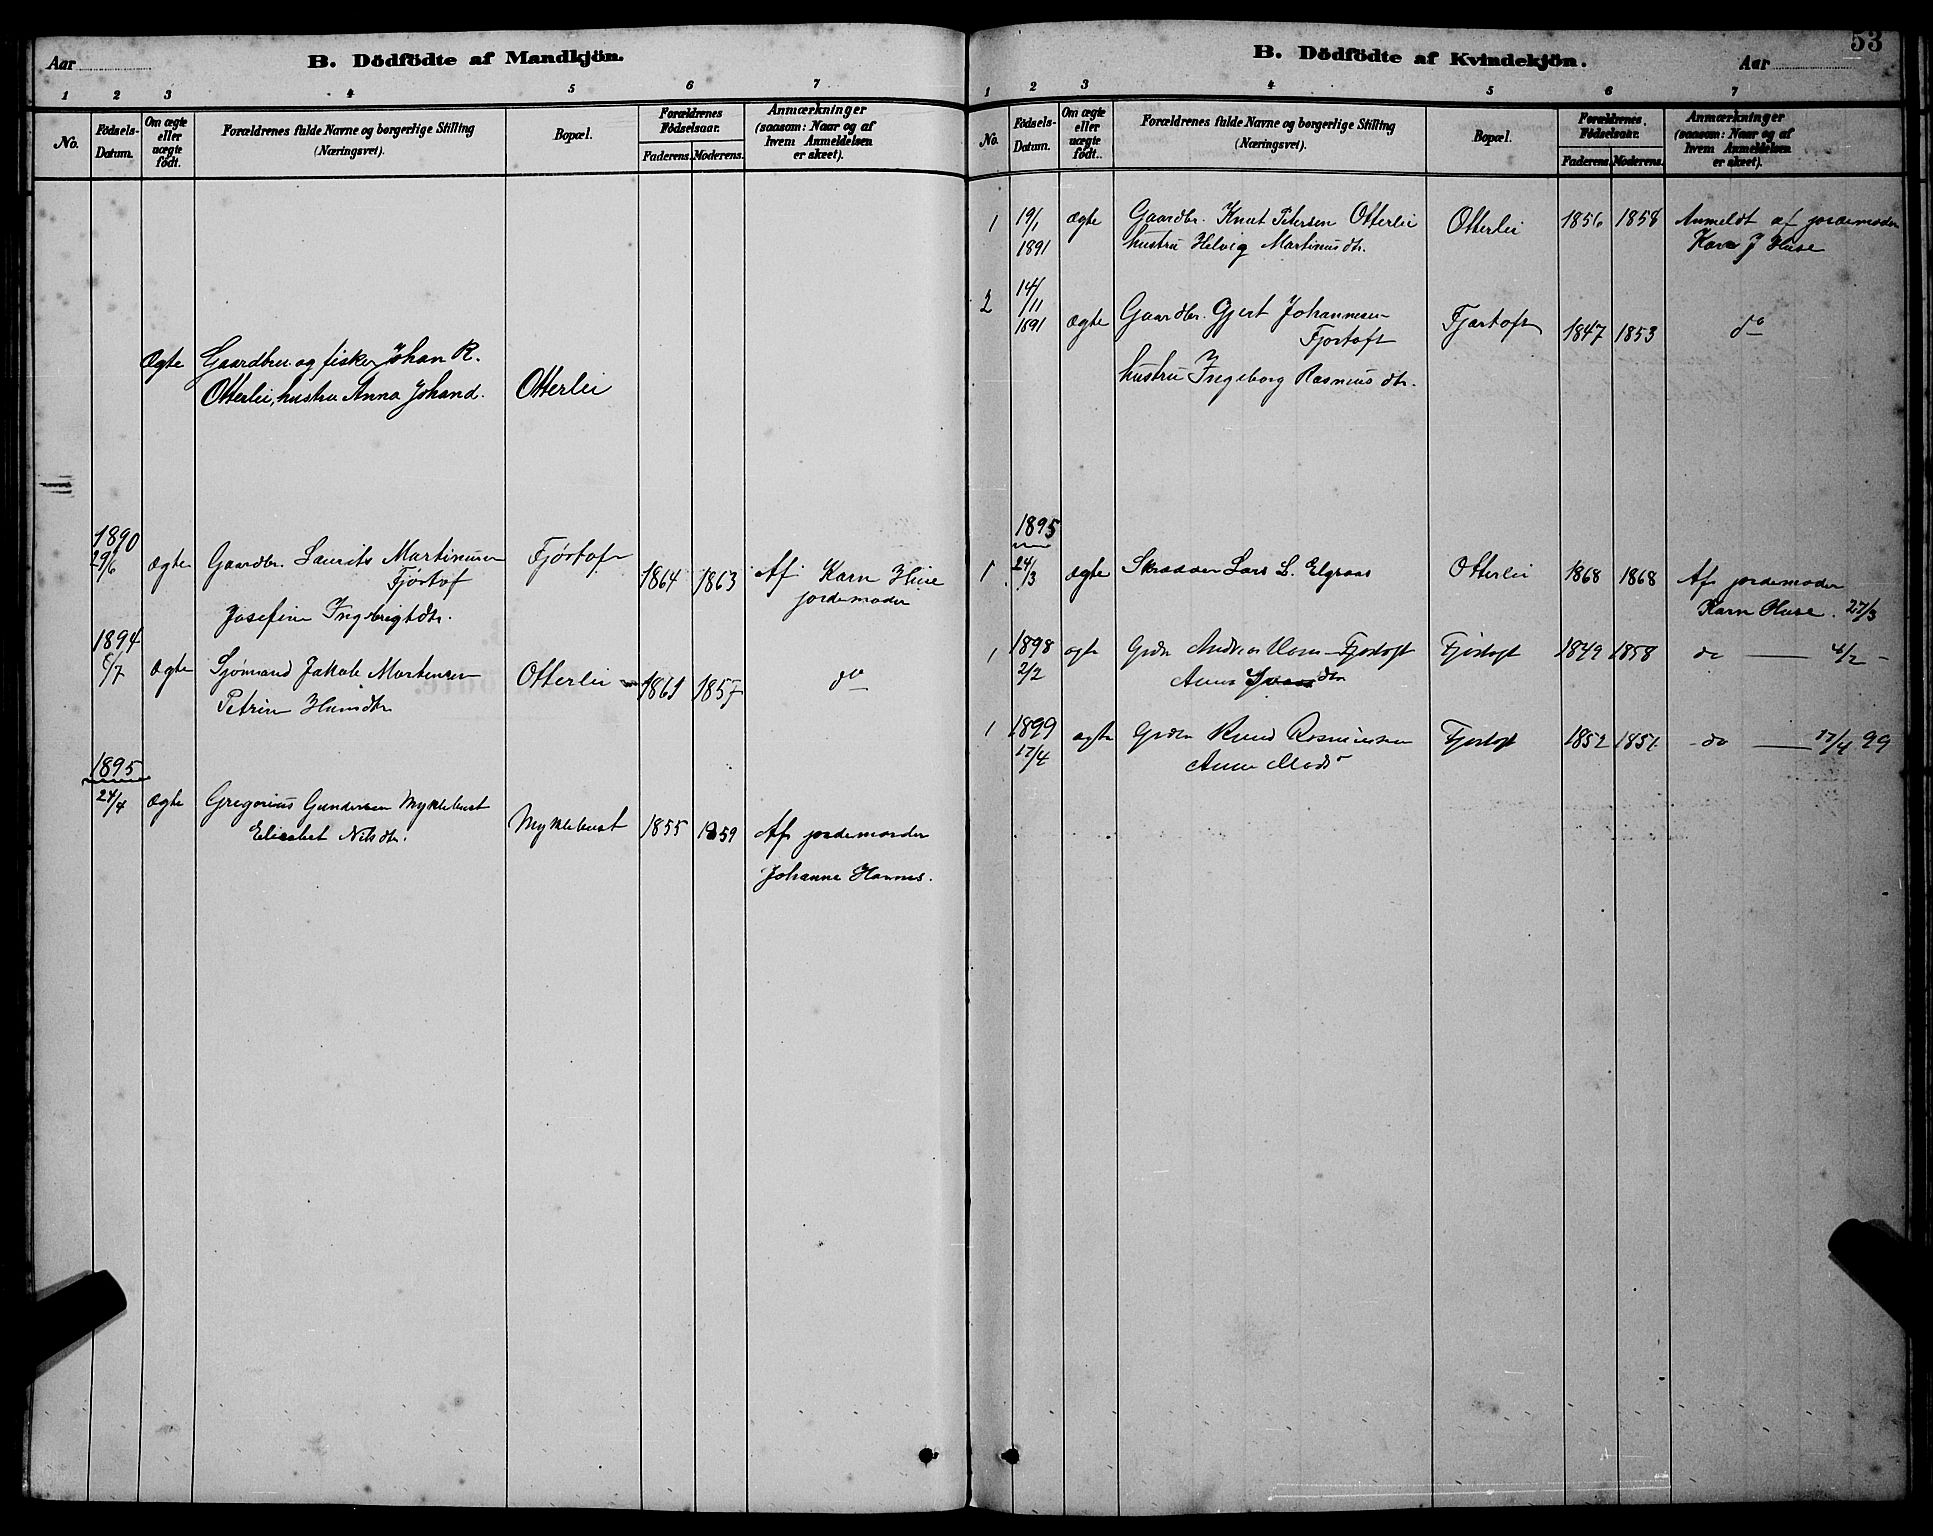 Aar
B. Dödfödte af Mandkjön.
1 2 3 4 5 6 7
No.
Födsels-
Datum.
Om ægte
eller
uægte
født.
Forældrenes fulde Navne og borgerlige Stilling
(Næringsvei).
Bopæl.
Forældrenes
Födselsaar.
Faderens. Moderens.
Anmærkninger
(saasom: Naar og af
hvem Anmeldelsen
er skeet).
Ægte Gaardbru og fisker Johan R.
Otterlei, hustru Anna Johand. Otterlei
1890
29/6 ægte Gaardbr. Laurits Martinusen Fjørtoft 1864 1863 Af Karn Huse
Fjørtof jordemoder
Josefine Ingebrigtdtr.
1894
6/7 ægte Sjømand Jakob Martensen Otterlei 1861 1857 do
Petrine
1895
24/4 ægte Gregorius Gundersen Myklebust Myklebust 1855 1859 Af jordemoder
Elisabet Nilsdtr. Johanna Hannes.
B. Dödfödte af Kvindekjön.
Aar
53
1 2 3 4 5 6 7
No.
Födsels-
Datum.
Om ægte
eller
uægte
födt.
Forældrenes fulde Navne og borgerlige Stilling
(Næringsvei).
Bopæl.
Forældrenes
Födselsaar.
Faderens. Moderens.
Anmærkninger
(saasom: Naar og af
hvem Anmeldelsen
er skeet).
1 19/1 ægte Gaardbr. Knut Petersen Otterlei Otterlei 1856 1858 Anmeldt af jordemoder
1891 hustru Helvig Martinusdtr. Karn J Huse
2 14/11
1891 ægte Gaardbr. Gjert Johannesen Fjørtoft 1847 1853 do
Fjortoft
hustru Ingeborg Rasmusdtr.
1895
1 24/3 ægte Skrædder Lars L. Elgsaas Otterlei 1868 1868 Af jordemoder
Karn Huse. 27/3
1 1898 ægte Grdbr Andreas Fjørtoft Fjørtoft 1849 1858 do 4/2
2/2 Anne
1 1899 ægte Grdbr Knud Rasmussen Fjørtoft 1852 1851 do 17/4 99
17/4 Anne Mads